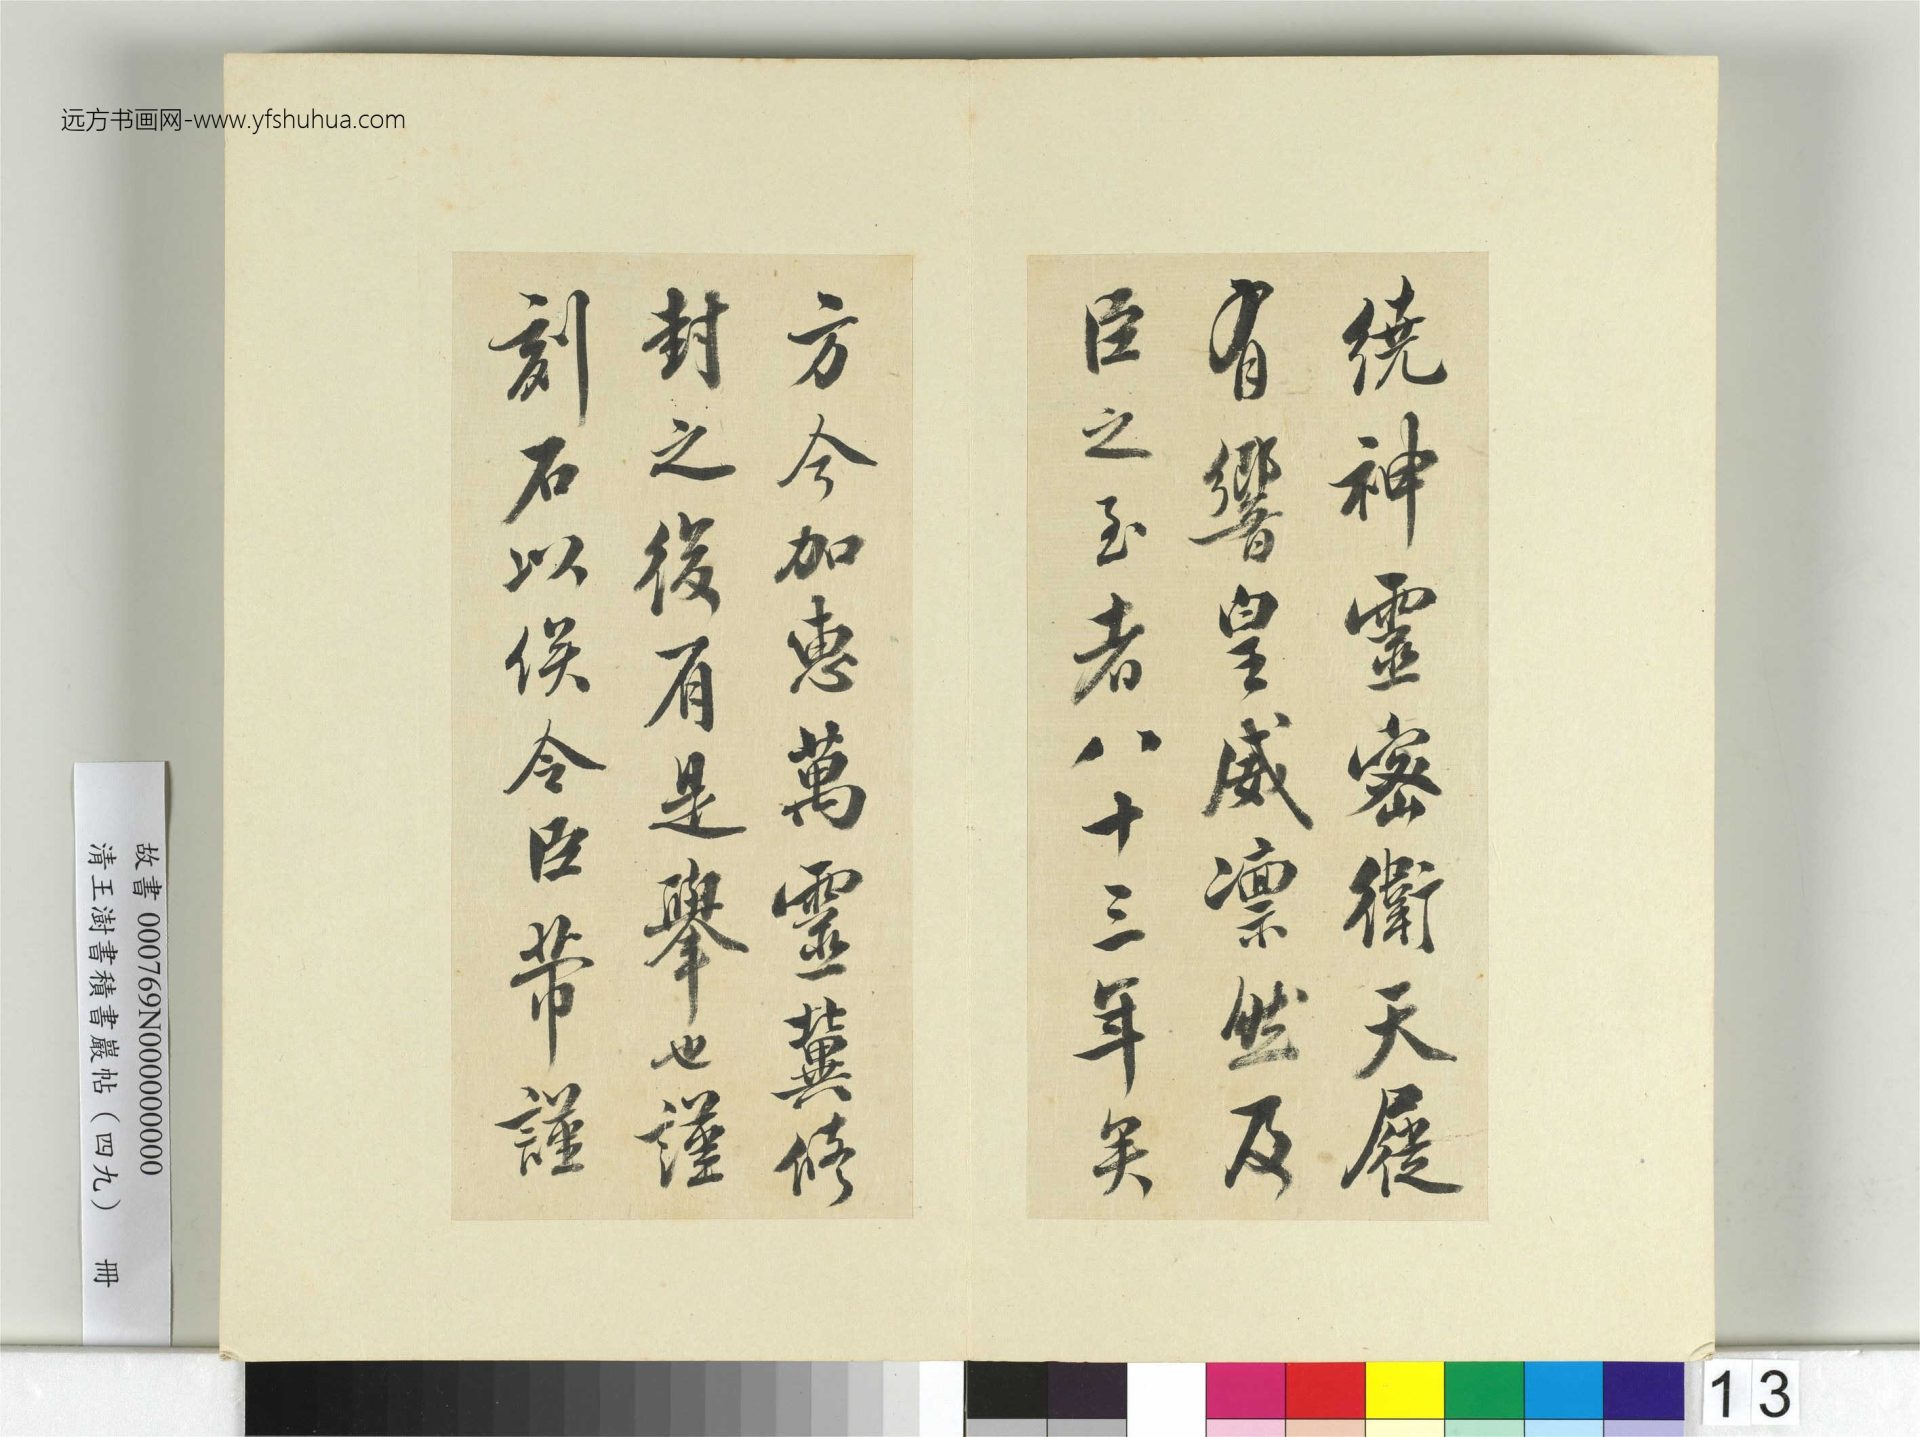 远方书画网-www.yfshuhua.com
繞神靈密衛天屣
有響皇威凛然及
臣之至者八十三年矣
方今加惠萬靈冀脩
封之後有是舉也謹
刻石以俟令臣芾謹
故書 000769N000000000
清王澍書積書巖帖（四九） 冊
13